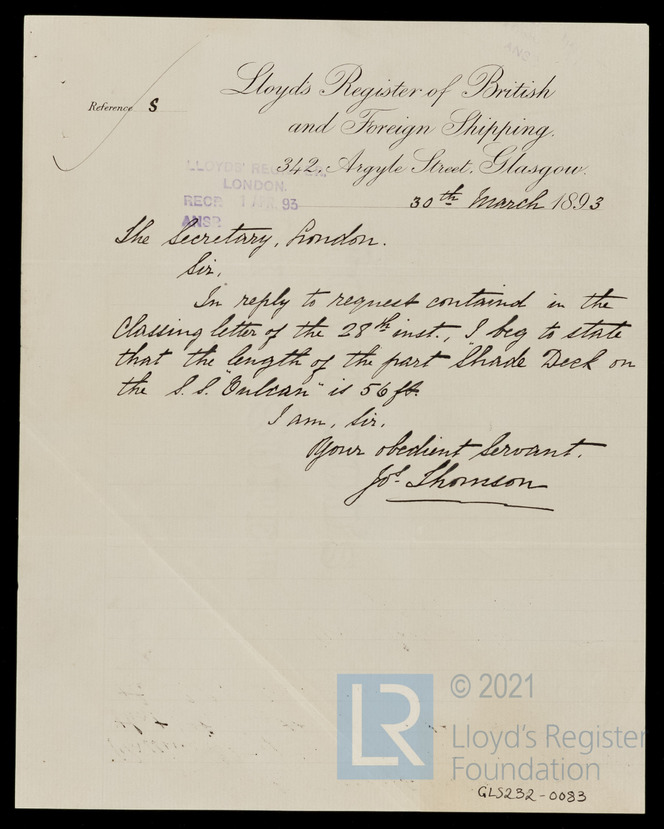 Lloyd's Register of British
and Foreign Shipping.
Reference S
342, Argyle Street, Glasgow.
LLOYDS' REGISTER,
LONDON.
RECD 1 APR. 93
ANSD
30th March 1893
The Secretary, London.
Sir,
In reply to request contained in the
Classing letter of the 28th inst., I beg to state
that the length of the part Shade Deck on
the S.S. "Vulcan" is 56 ft.
I am, Sir,
Your obedient Servant.
Jos. Thomson
© 2021
LR
Lloyd's Register
Foundation
GLS232-0083